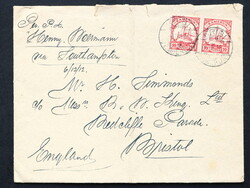 Per P.k.
Henny Woermann
via Southampton
6/12/12.
Mr. H. Simmonds
c/o Messrs R. W. King, Ltd
Redcliffe Parade.
Bristol
England